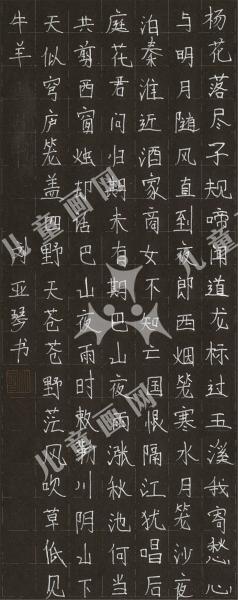 杨花落尽子规啼闻道龙标过五溪我寄愁心
与明月随风直到夜郎西烟笼寒水月笼沙夜
泊秦淮近酒家商女不知亡国恨隔江犹唱后
庭花君问归期未有期巴山夜雨涨秋池何当
共剪西窗烛却话巴山夜雨时敕勒川阴山下
天似穹庐笼盖四野天苍苍野茫风吹草低见
牛羊 亚琴书
儿童画网